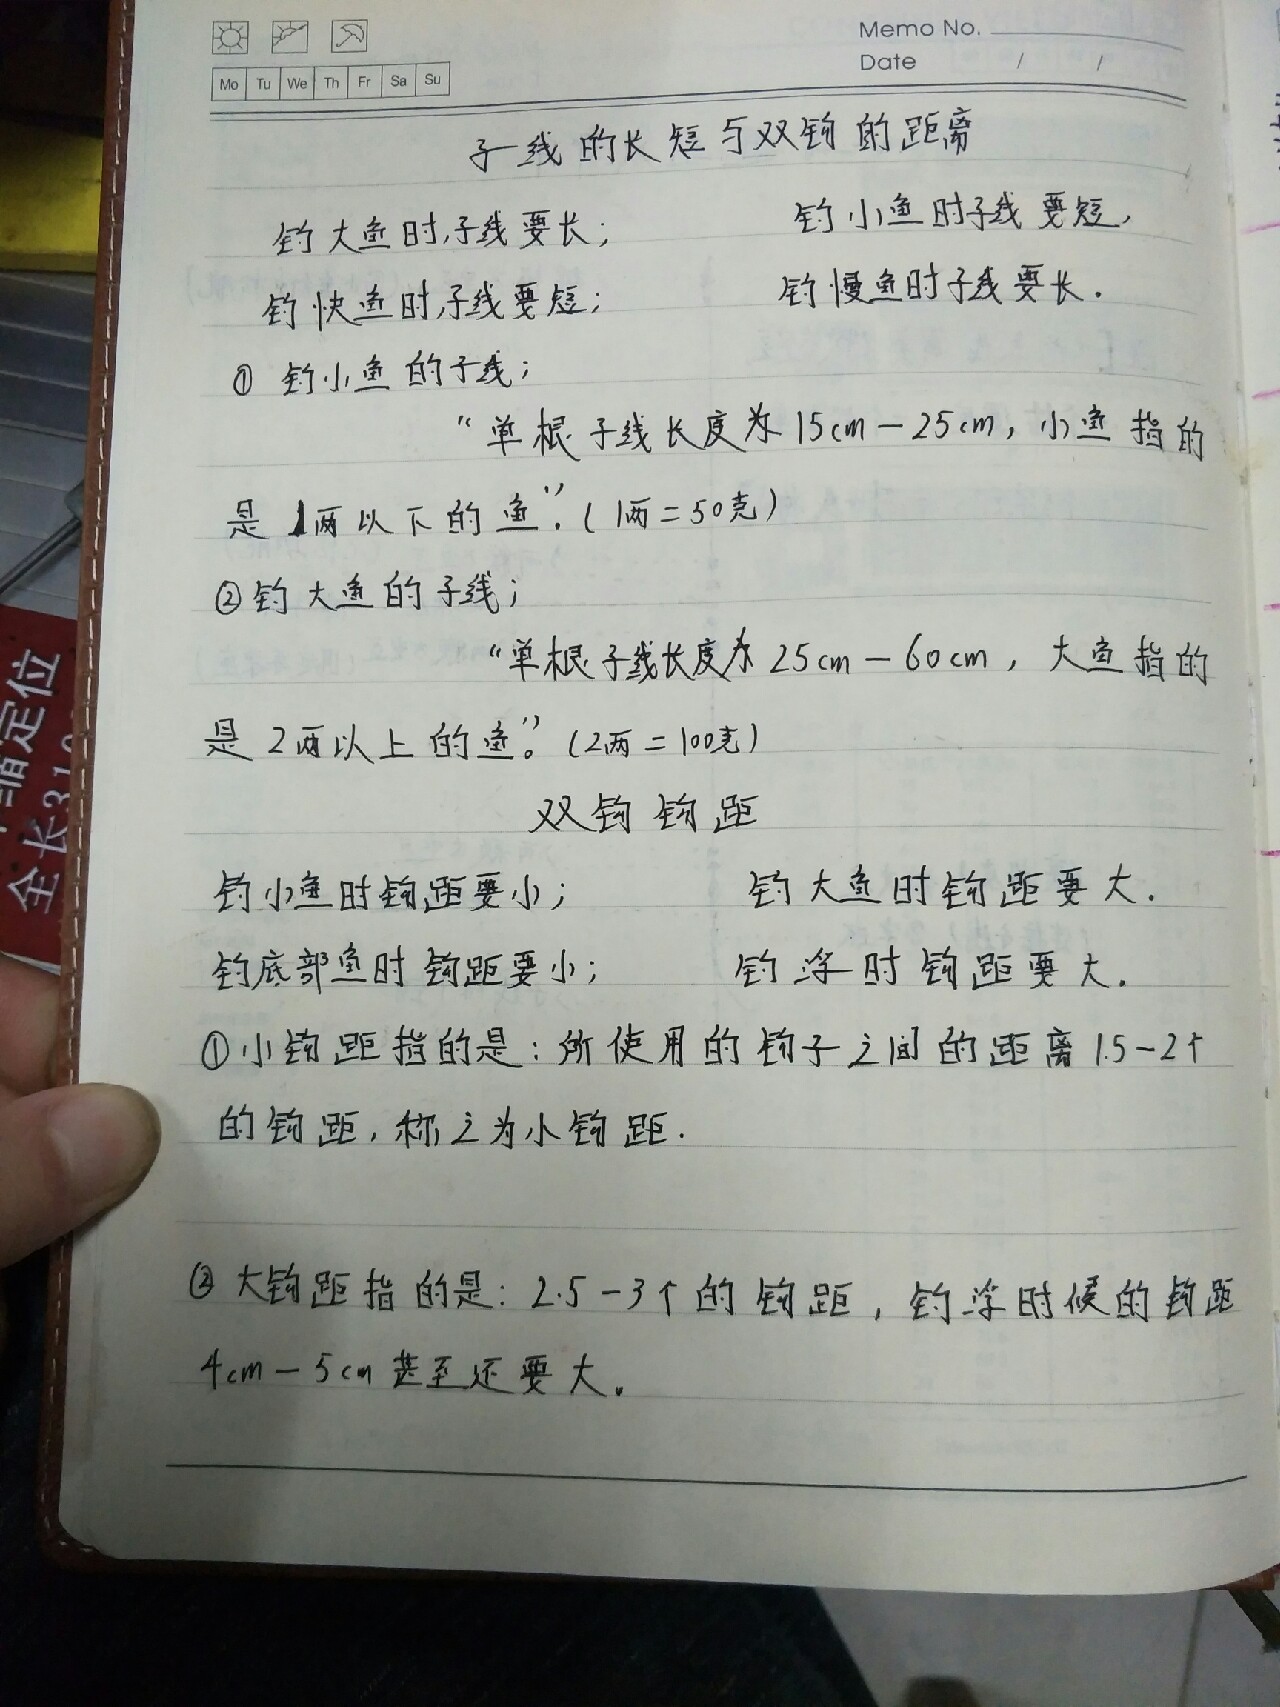 Memo No.
Date / /
Mo Tu We Th Fr Sa Su
子线的长短与双钩的距离
钓大鱼时,子线要长; 钓小鱼时子线要短,
钓快鱼时,子线要短; 钓慢鱼时子线要长.
① 钓小鱼的子线;
“单根子线长度为15cm－25cm, 小鱼指的
是1两以下的鱼”.(1两=50克)
②钓大鱼的子线;
“单根子线长度为25cm－60cm, 大鱼指的
是2两以上的鱼”。(2两=100克)
双钩钩距
钓小鱼时钩距要小; 钓大鱼时钩距要大.
钓底部鱼时钩距要小; 钓浮时钩距要大.
①小钩距指的是:所使用的钩子之间的距离1.5-2个
的钩距,称之为小钩距.
② 大钩距指的是:2.5-3个的钩距,钓浮时候的钩距
4cm－5cm甚至还要大。
定位
全长